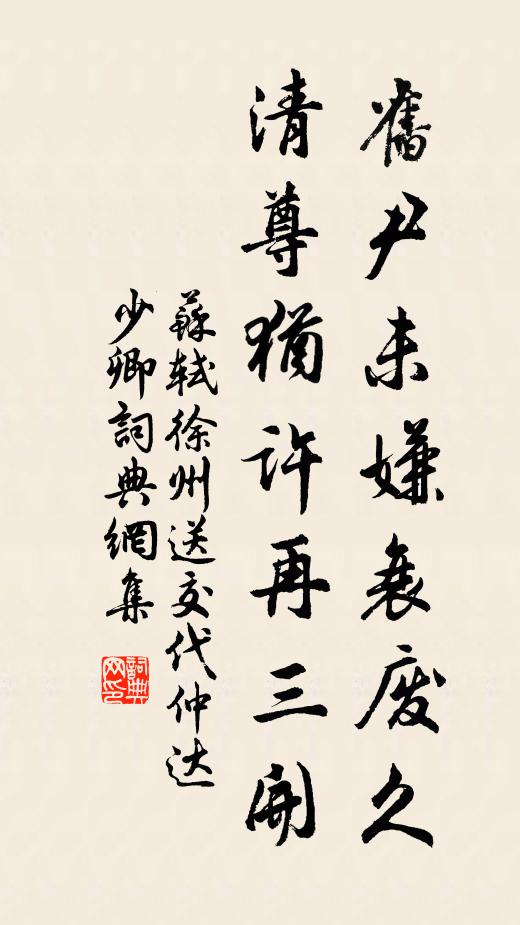 舊尹未嫌衰廢久
清尊猶許再三開
蘇軾徐州送交代仲达
少卿詞典網集
詞典网印